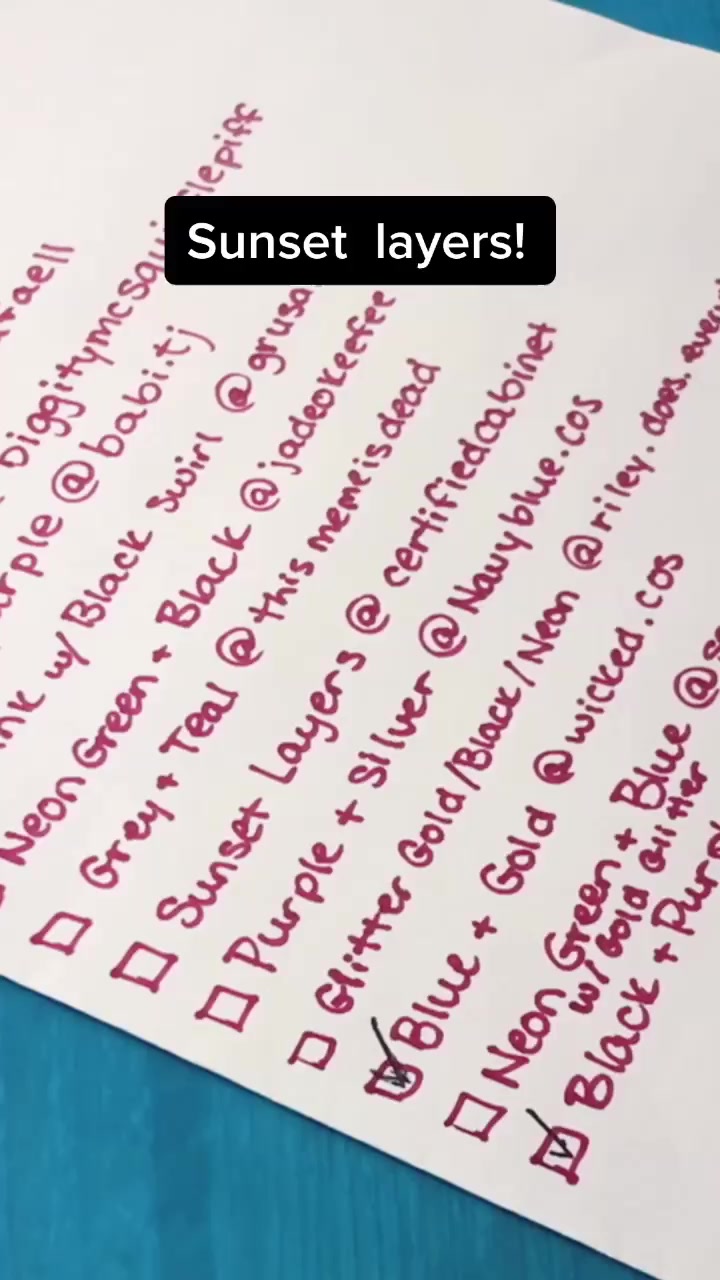 Sunset layers!
Diggitymcsqui clepiff
@babi.tj
w/ Black Swirl @grusa
Neon Green + Black @jadeokeefee
Grey + Teal @this memeisdead
Sunset Layers @certifiedcabinet
Purple + Silver @Navyblue.cos
Glitter Gold/Black/Neon @riley.does.
Blue + Gold @wicked.cos
Neon Green + Blue @s
w/ Gold Glitter
Black + Purpl